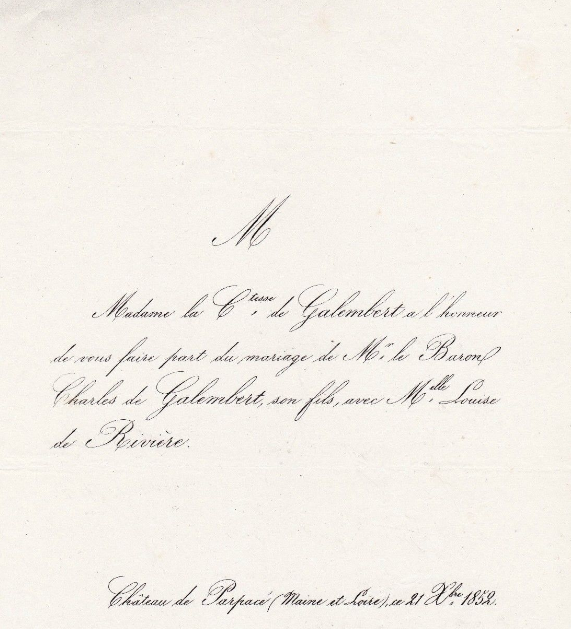 M
Madame la C.tesse de Galembert a l'honneur
de vous faire part du mariage de M.r le Baron
Charles de Galembert, son fils, avec M.elle Louise
de Rivière.
Château de Parpacé (Maine et Loire), ce 21 X.bre 1852.